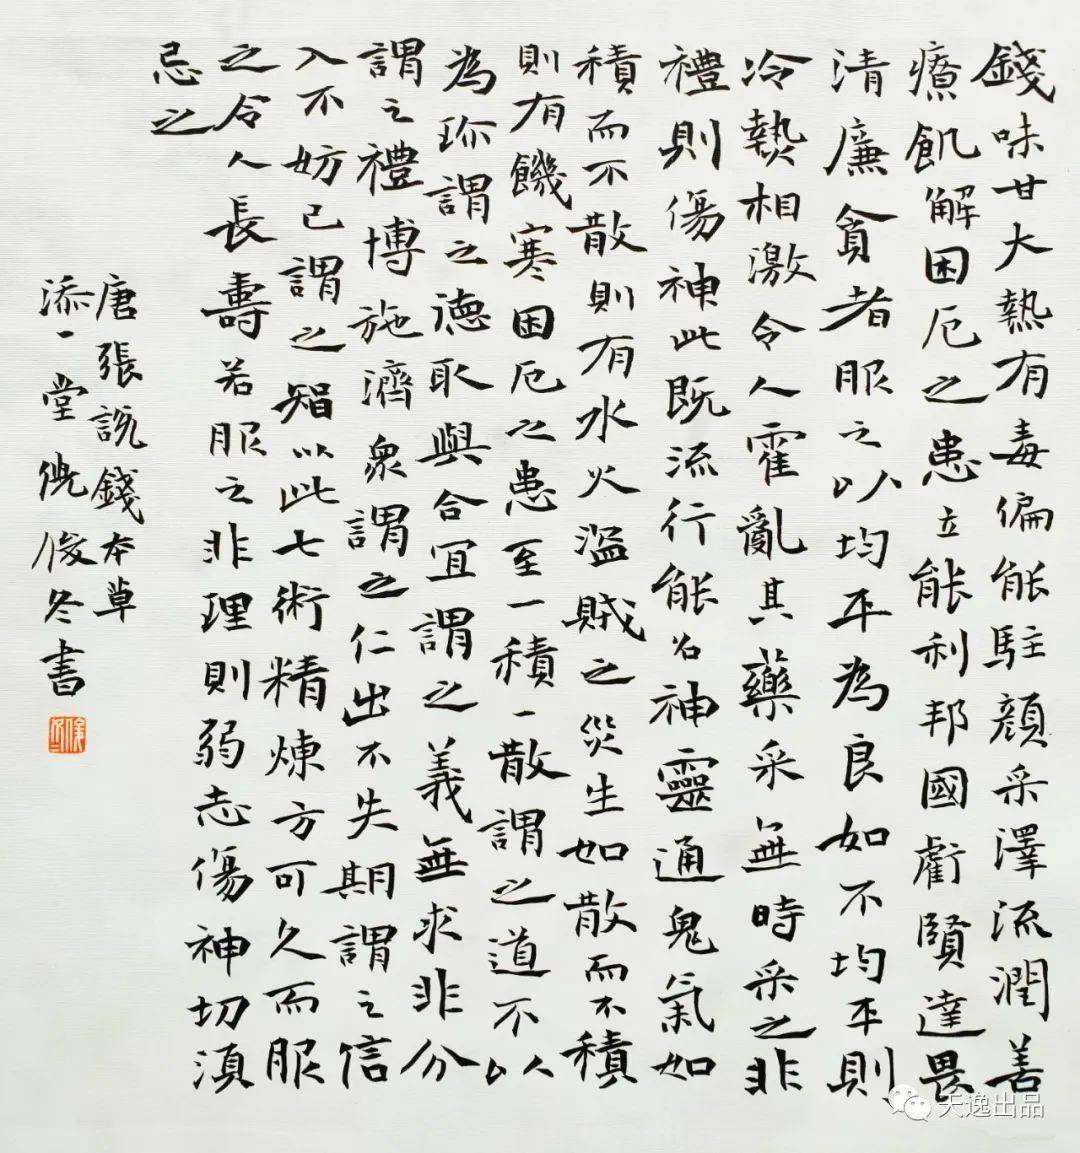 錢味甘大熱有毒偏能駐顏采澤流潤善
療飢解困厄之患立能利邦國虧賢達畏
清廉貪者服之以均平為良如不均平則
冷熱相激令人霍亂其藥采無時采之非
禮則傷神此既流行能召神靈通鬼氣如
積而不散則有水火盜賊之災生如散而不積
則有饑寒困厄之患至一積一散謂之道不以
為珎謂之德取與合宜謂之義無求非分
謂之禮博施濟衆謂之仁出不失期謂之信
入不妨己謂之智以此七術精煉方可久而服
之令人長壽若服之非理則弱志傷神切須
忌之
唐張説錢本草
添一堂俊冬書
天逸出品